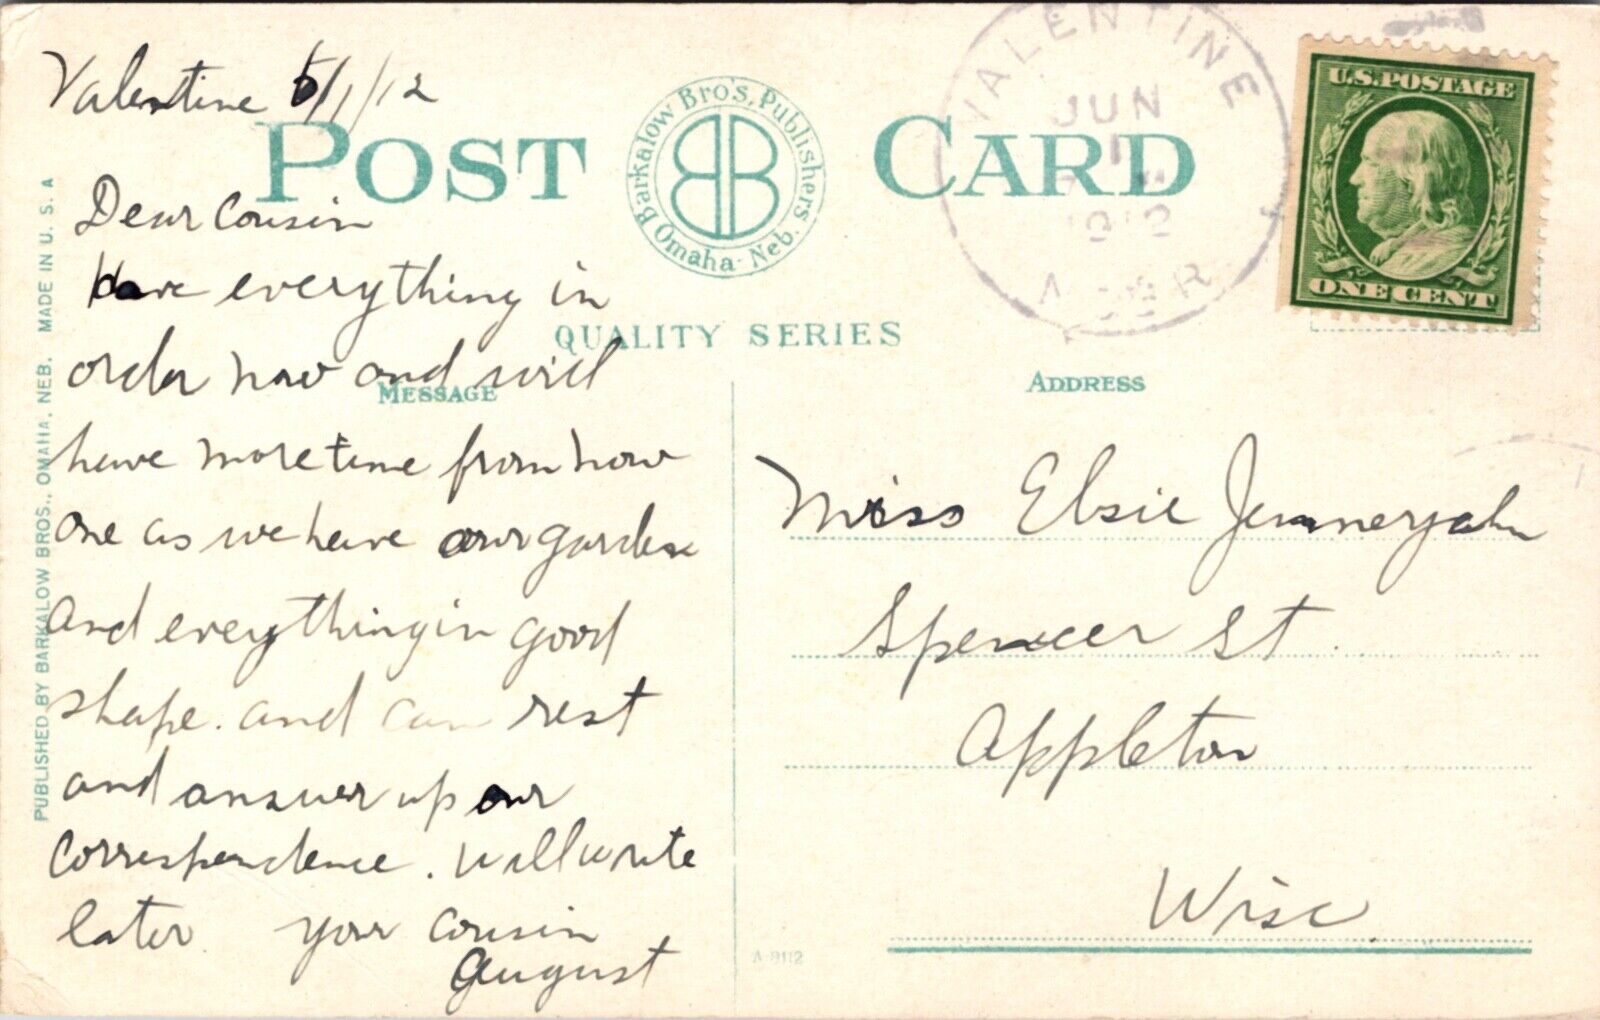 Valentine 6/1/12
POST CARD
Barkalow Bro's, Publishers.
Omaha Neb.
VALENTINE
JUN
1
1912
U.S. POSTAGE
ONE CENT
QUALITY SERIES
MESSAGE
ADDRESS
Dear Cousin
Have everything in
order now and will
have more time from now
one as we have our garden
and everything in good
shape. and can rest
and answer up our
correspondence. will write
later. your cousin
August
Miss Elsie Jennerjahn
Spencer St.
Appleton
Wisc.
PUBLISHED BY BARKALOW BROS., OMAHA, NEB. MADE IN U. S. A
A-9112